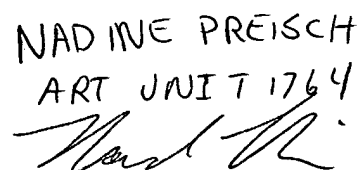 NADINE PREISCH
ART UNIT 1764